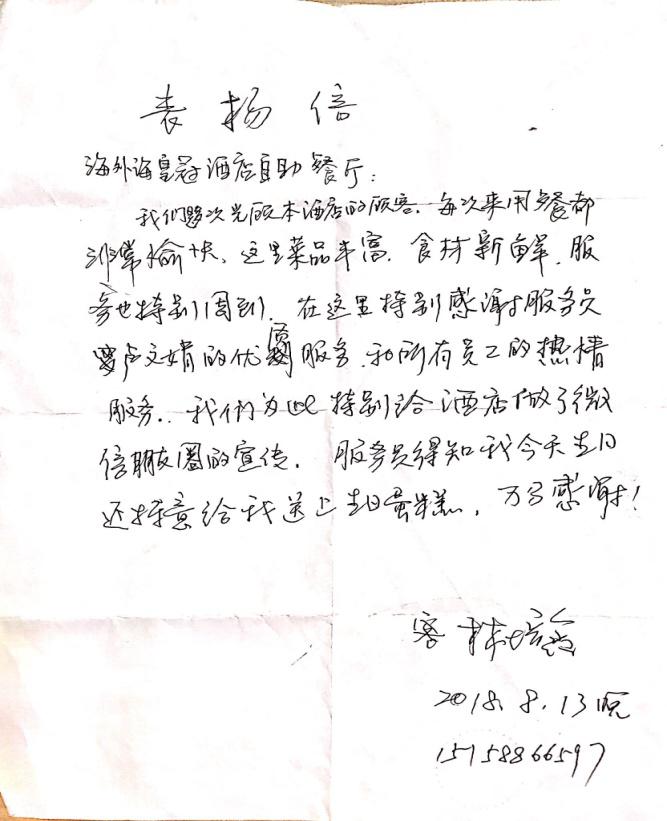 表扬信
海外海皇冠酒店自助餐厅:
我们多次光顾本酒店的顾客,每次来用餐都
非常愉快,这里菜品丰富,食材新鲜,服
务也特别周到,在这里特别感谢服务员
卢文婧的优质服务,和所有员工的热情
服务..我们为此特别给酒店做了微
信朋友圈的宣传,服务员得知我今天生日
还特意给我送上生日蛋糕,万分感谢!
客 林培
2018.8.13晚
15158866597